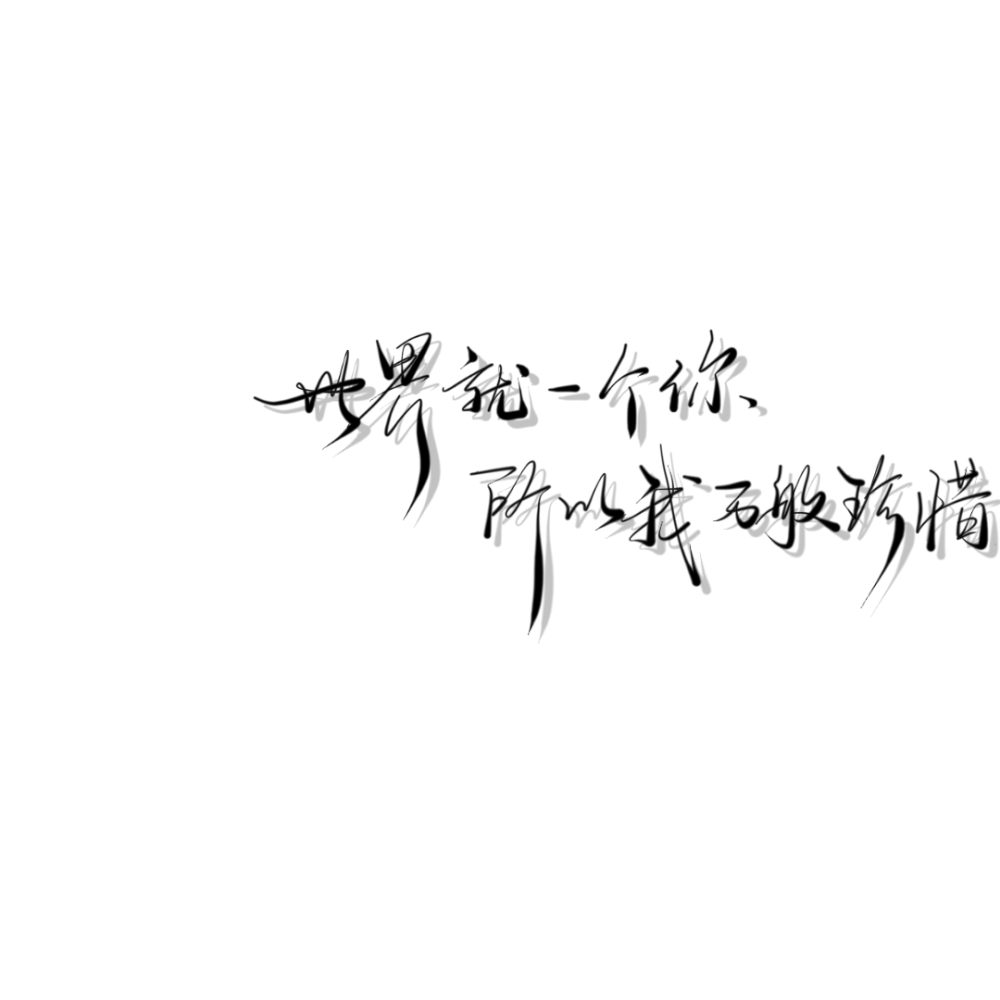 世界就一个你、
所以我万般珍惜